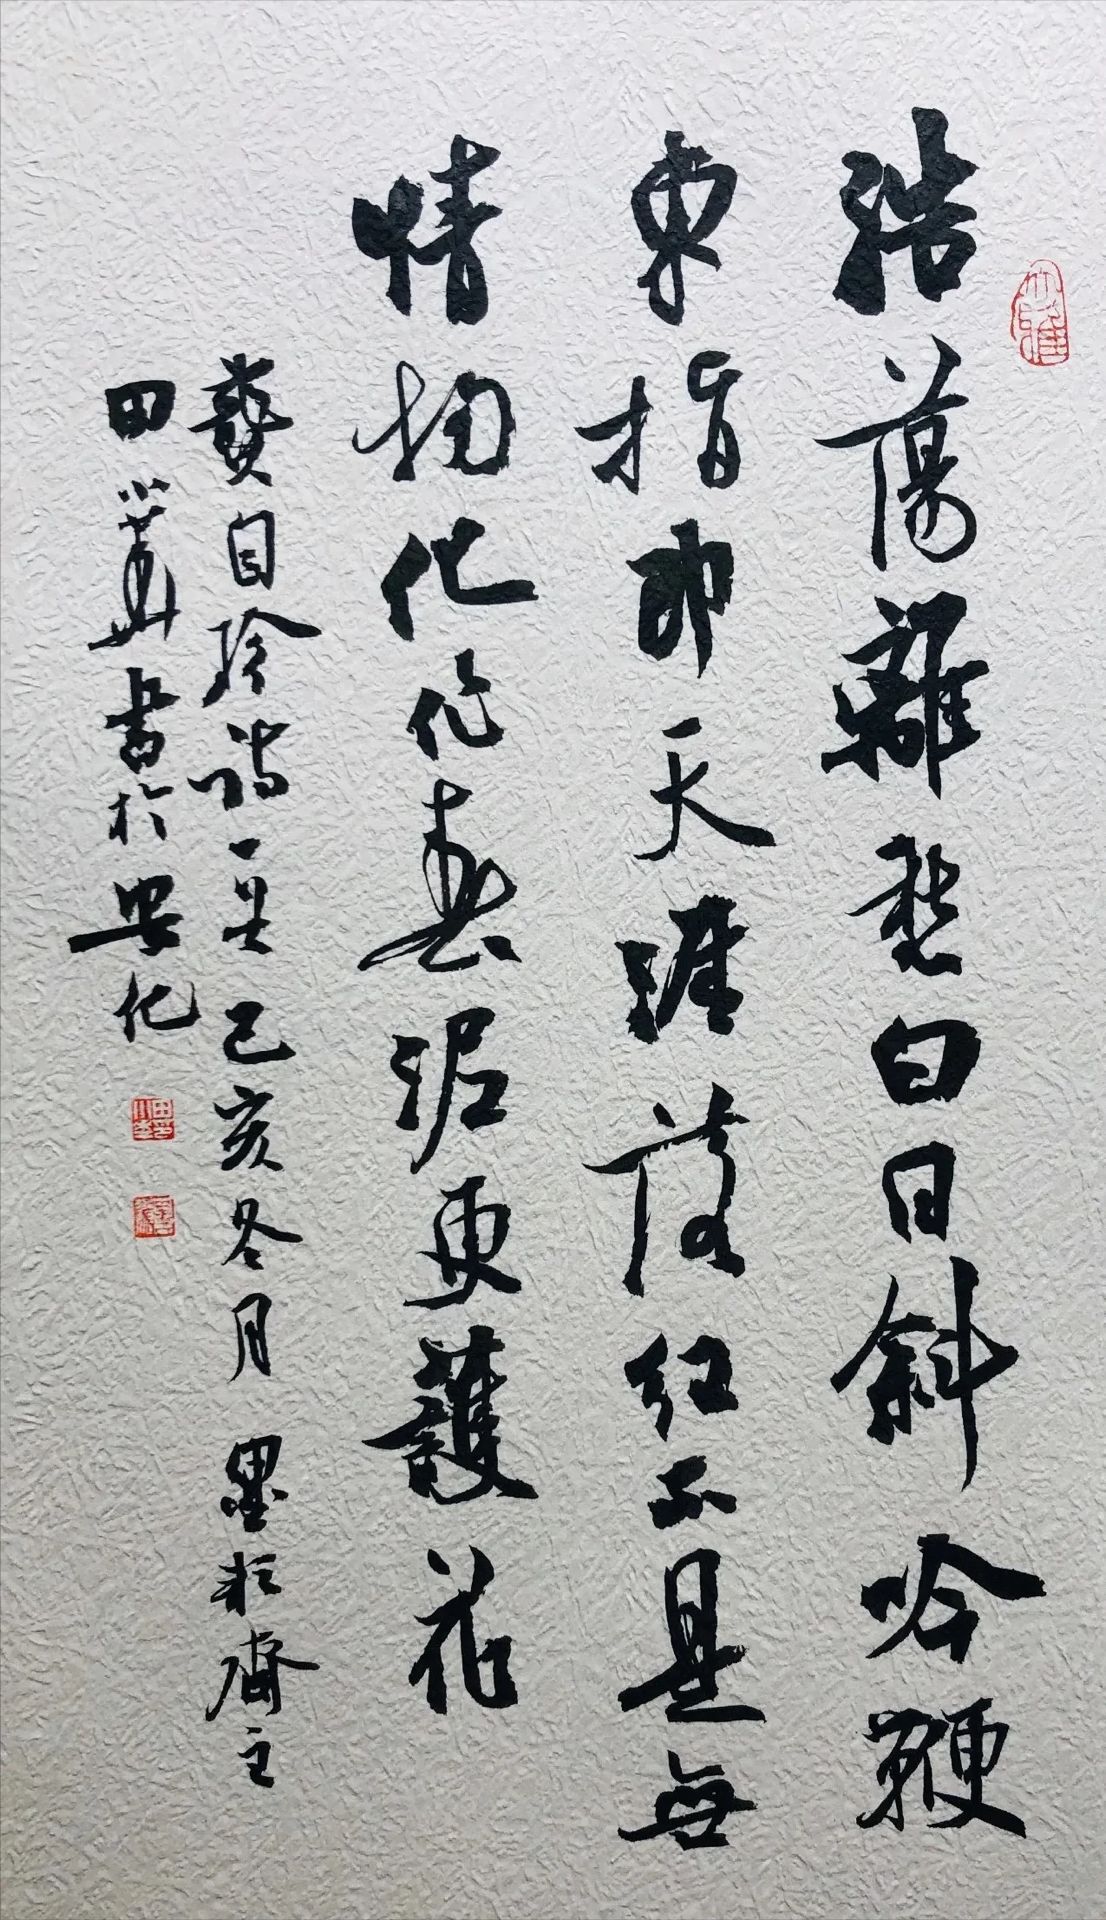 浩蕩離愁白日斜吟鞭
東指即天涯落紅不是無
情物化作春泥更護花
龔自珍詩一首己亥冬月 墨耘齋主
田小華書於安化